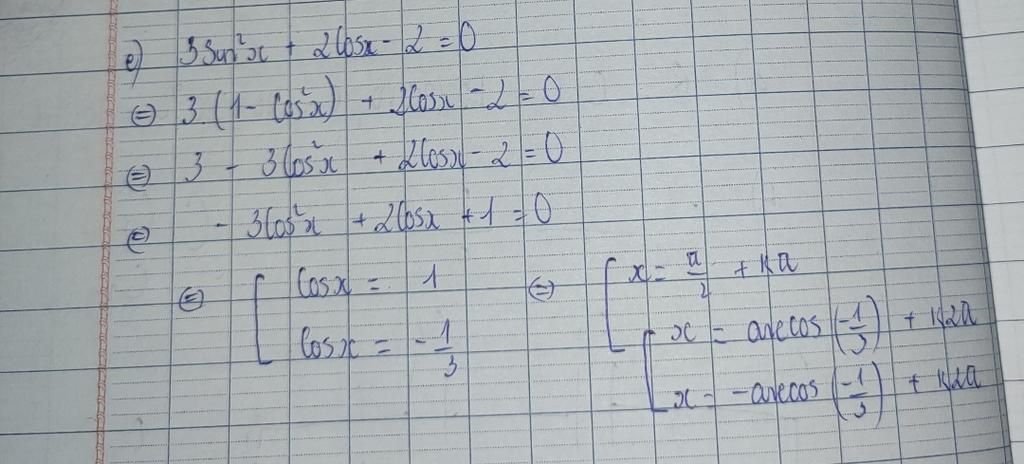 e) 3sin²x + 2cosx - 2 = 0
⇔ 3(1 - cos²x) + 2cosx - 2 = 0
⇔ 3 - 3cos²x + 2cosx - 2 = 0
⇔ - 3cos²x + 2cosx + 1 = 0
⇔ [ cosx = 1 ⇔ [ x = π/2 + kπ
cosx = -1/3 [ x = arccos(-1/3) + k2π
x = -arccos(-1/3) + k2π